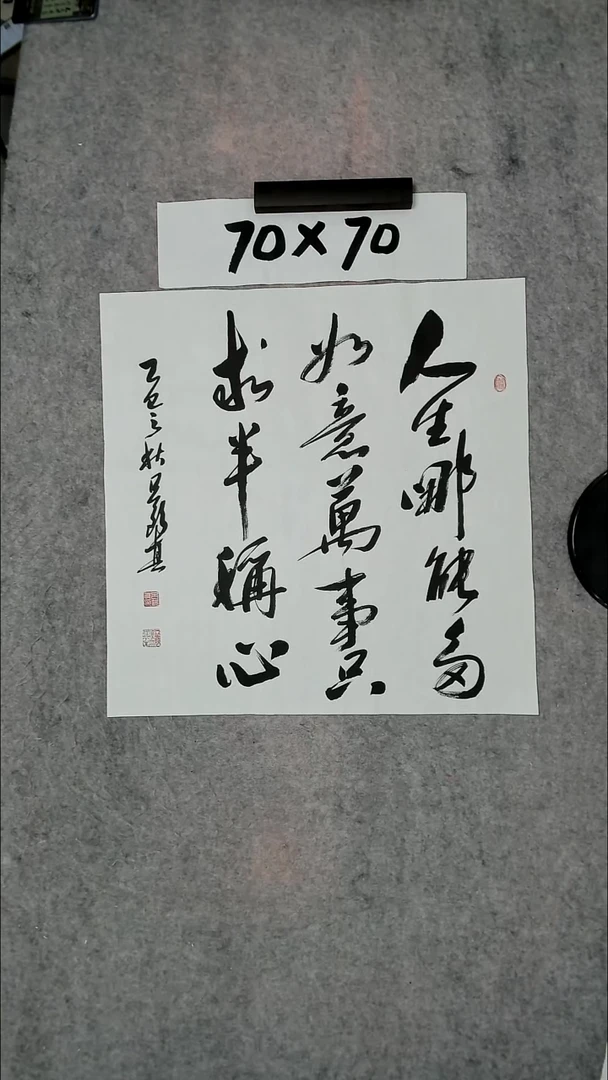 70×70
人生哪能多
如意萬事只
求半稱心
乙巳之秋吴